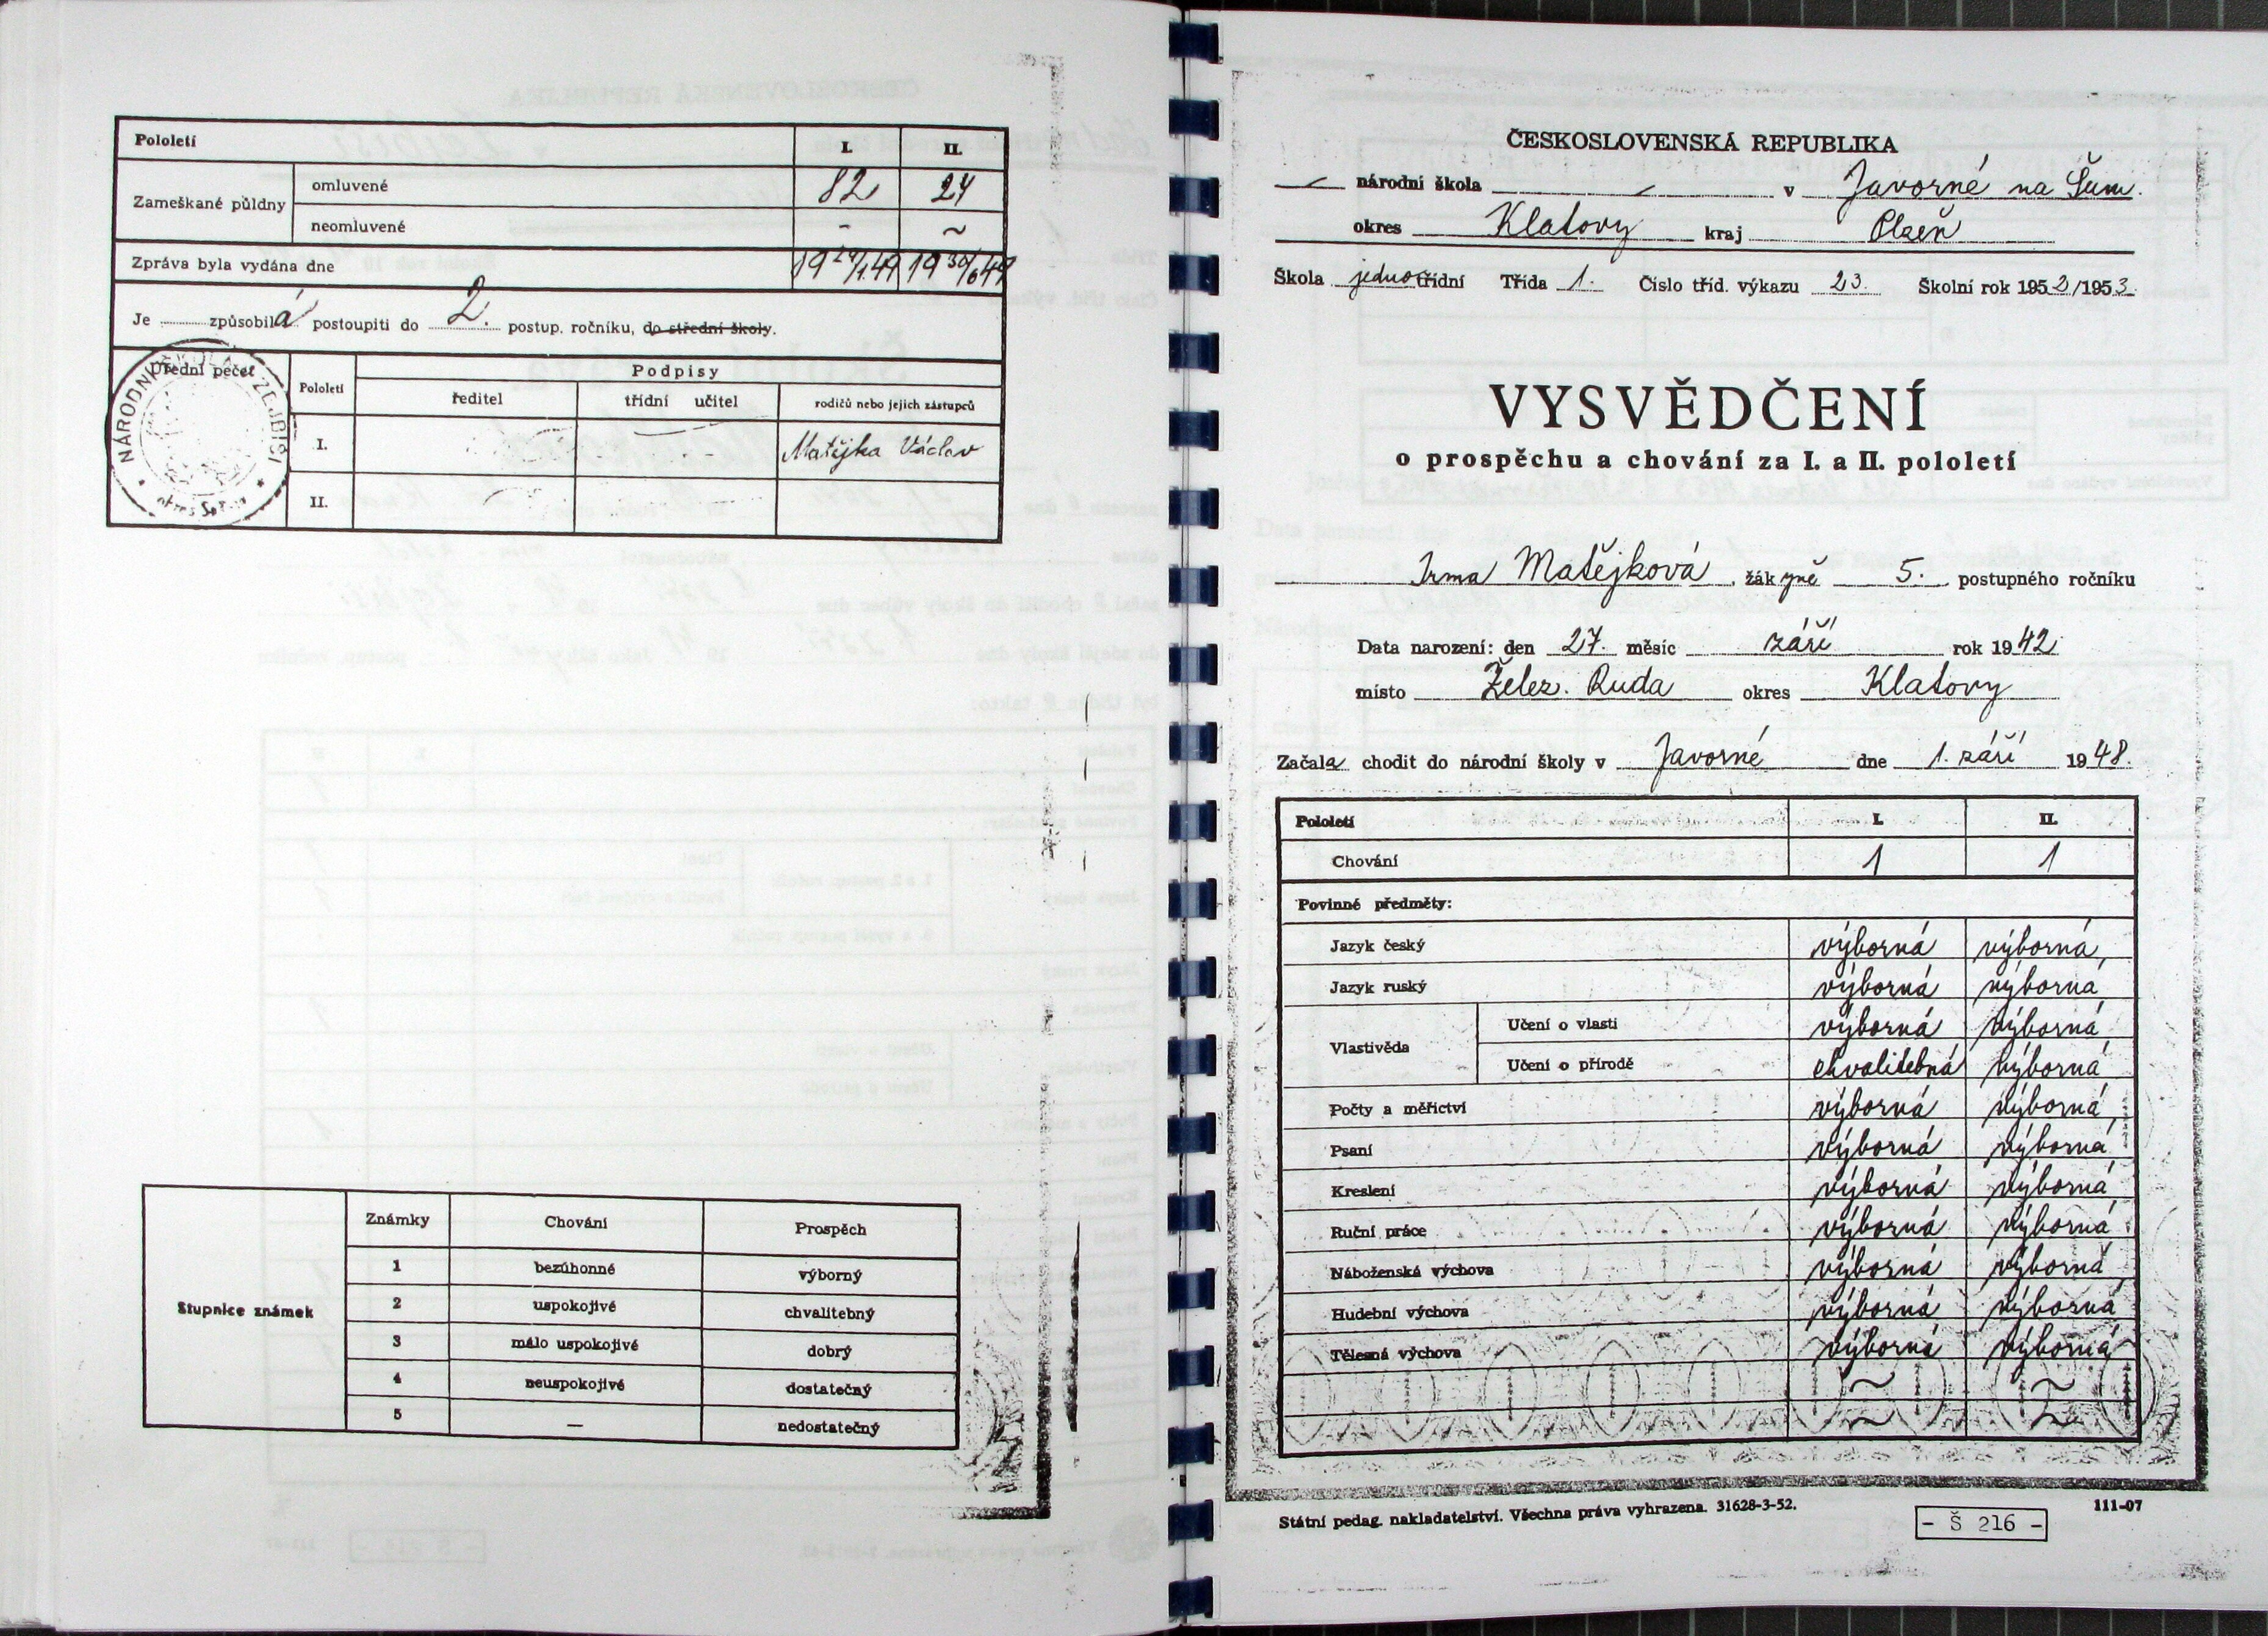 Pololetí I. II.
Zameškané půldny omluvené 82 24
neomluvené - ~
Zpráva byla vydána dne 19 29/1.49 19 30/6 49
Je způsobilá postoupiti do 2. postup. ročníku, do střední školy.
Úřední pečeť Pololetí Podpisy
ředitel třídní učitel rodičů nebo jejich zástupců
I. Matějka Václav
II.
NÁRODNÍ ŠKOLA
Stupnice známek Známky Chování Prospěch
1 bezúhonné výborný
2 uspokojivé chvalitebný
3 málo uspokojivé dobrý
4 neuspokojivé dostatečný
5 — nedostatečný
ČESKOSLOVENSKÁ REPUBLIKA
národní škola v Javorné na Šum.
okres Klatovy kraj Plzeň
Škola jednotřídní Třída 1. Číslo tříd. výkazu 23. Školní rok 1952/1953.
VYSVĚDČENÍ
o prospěchu a chování za I. a II. pololetí
Irma Matějková, žákyně 5. postupného ročníku
Data narození: den 27. měsíc září rok 1942
místo Želez. Ruda okres Klatovy
Začala chodit do národní školy v Javorné dne 1. září 1948.
Pololetí I. II.
Chování 1 1
Povinné předměty:
Jazyk český výborná výborná
Jazyk ruský výborná výborná
Vlastivěda Učení o vlasti výborná výborná
Učení o přírodě chvalitebná výborná
Počty a měřictví výborná výborná
Psaní výborná výborná
Kreslení výborná výborná
Ruční práce výborná výborná
Náboženská výchova výborná výborná
Hudební výchova výborná výborná
Tělesná výchova výborná výborná
Státní pedag. nakladatelství. Všechna práva vyhrazena. 31628-3-52. 111-07
- Š 216 -